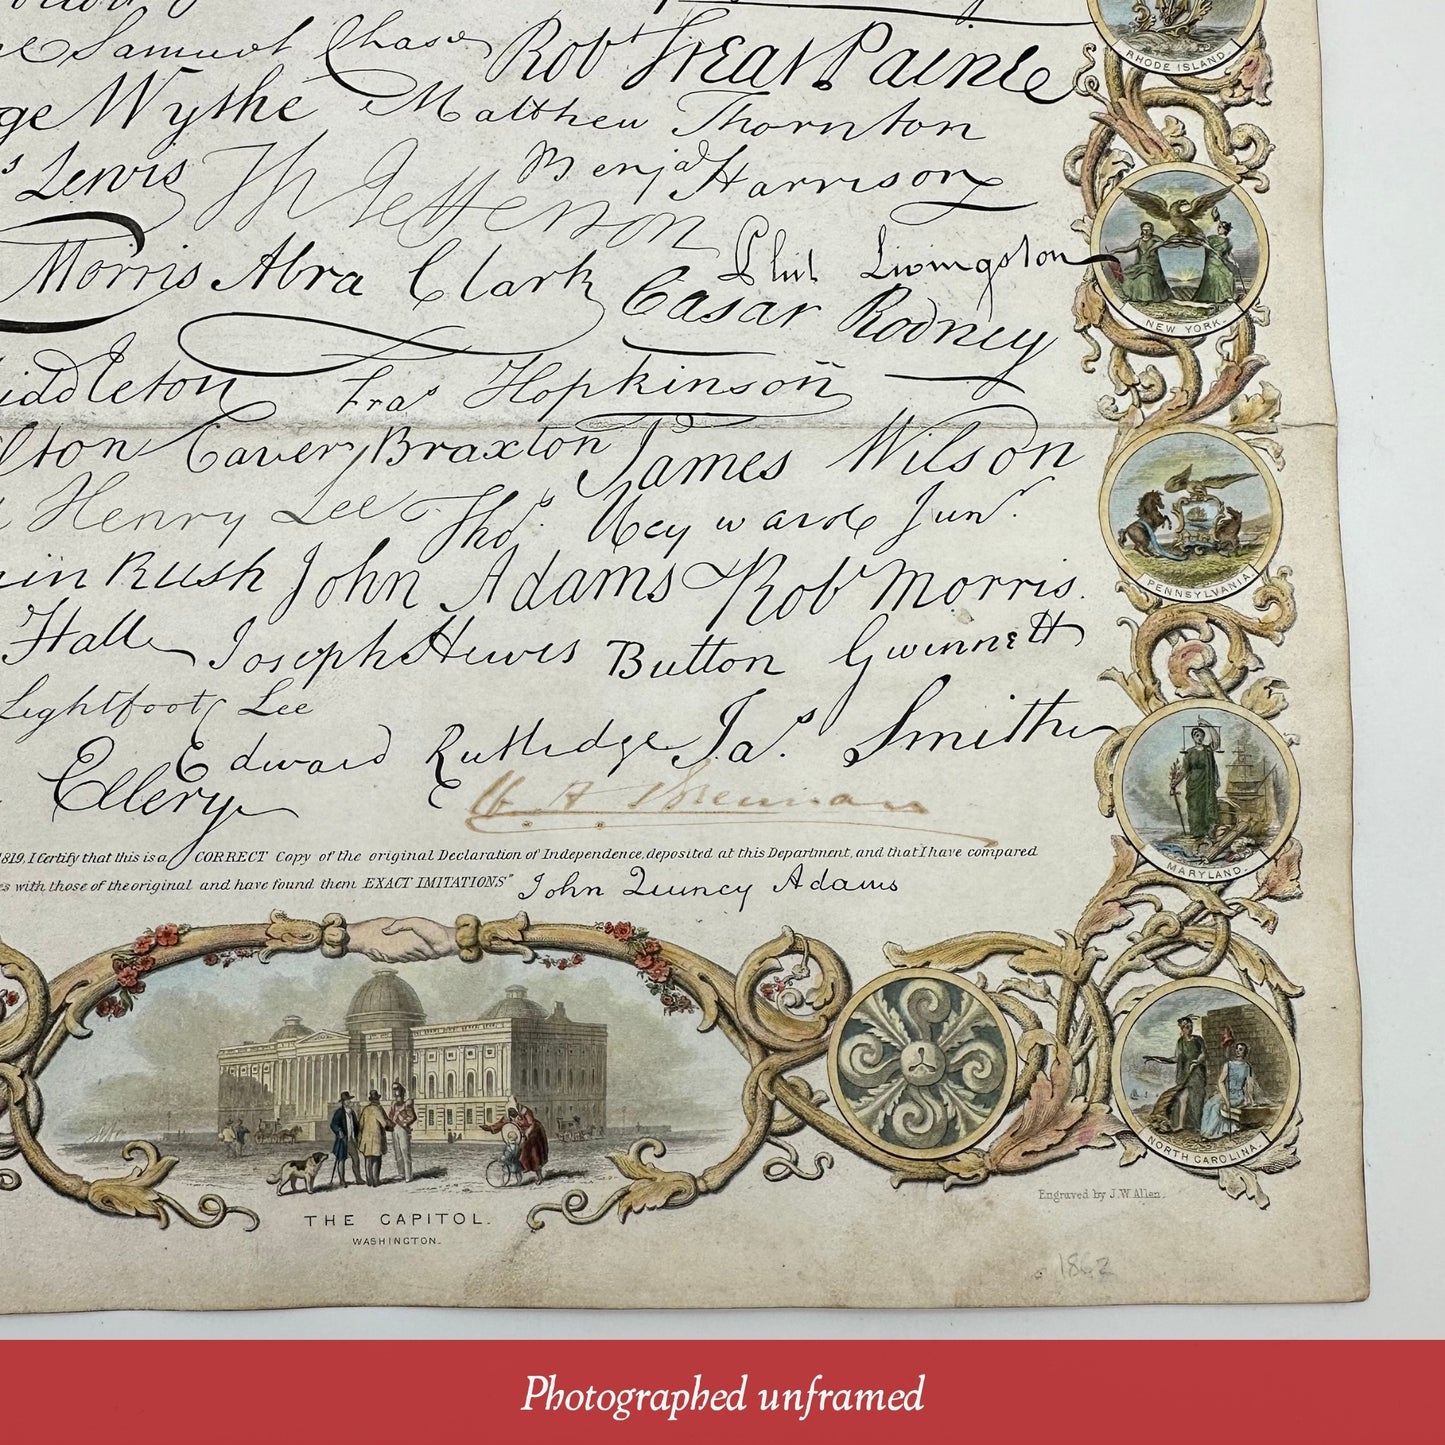 Samuel Chase Robt Treat Paine
RHODE ISLAND.
ge Wythe Matthew Thornton
s Lewis Th Jefferson Benja Harrison
Morris Abra Clark Phil. Livingston
NEW YORK.
Casar Rodney
iddleton Fras Hopkinson
lton Carter Braxton James Wilson
Henry Lee Thos. Heyward Junr.
min Rush John Adams Robt Morris.
PENNSYLVANIA
Hall Joseph Hewes Button Gwinnett
Lightfoot Lee
Edward Rutledge Jas. Smith
Ellery
MARYLAND.
1819, I Certify that this is a CORRECT Copy of the original Declaration of Independence, deposited at this Department, and that I have compared
es with those of the original and have found them EXACT IMITATIONS" John Quincy Adams
NORTH CAROLINA.
Engraved by J.W. Allen.
THE CAPITOL.
WASHINGTON.
1862
Photographed unframed